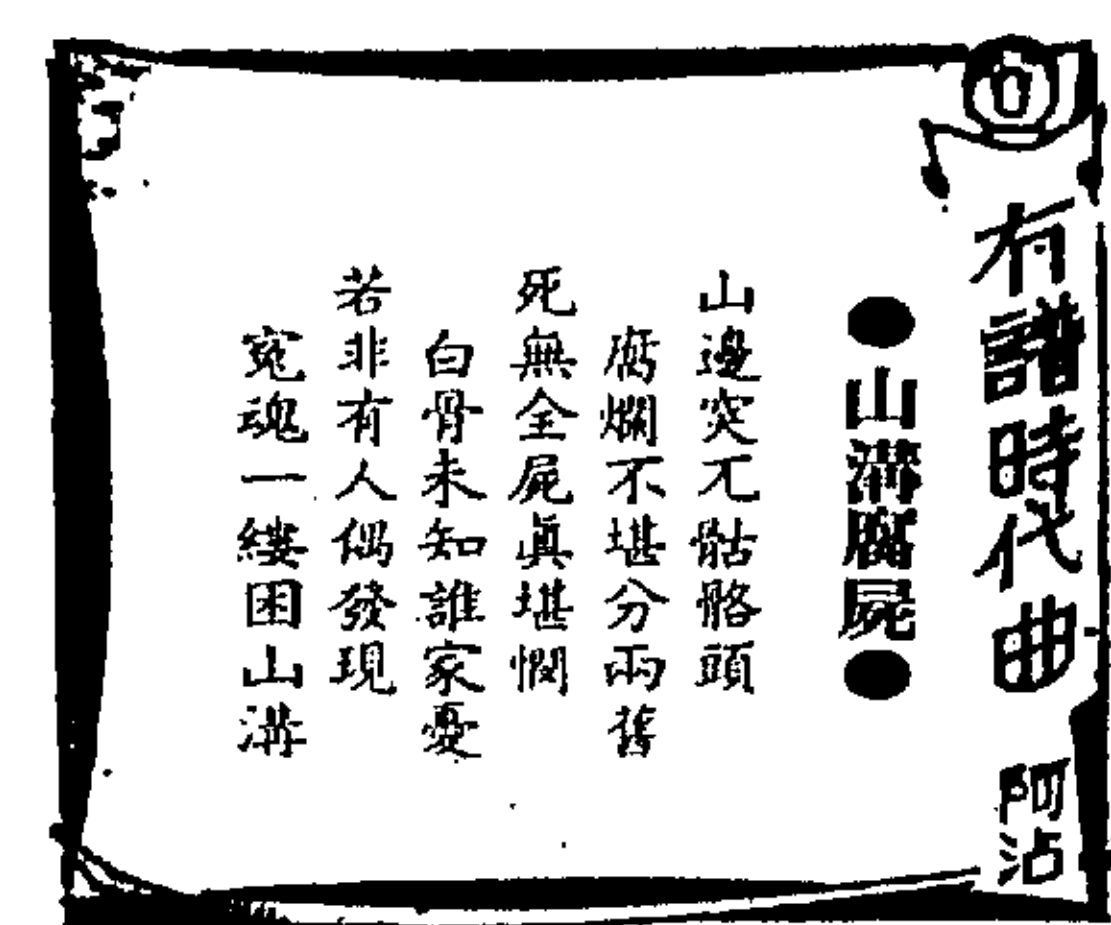 有譜時代曲
阿沾
●山溝腐屍●
山邊突兀骷骼頭
腐爛不堪分兩舊
死無全屍真堪憫
白骨未知誰家憂
若非有人偶發現
冤魂一縷困山溝